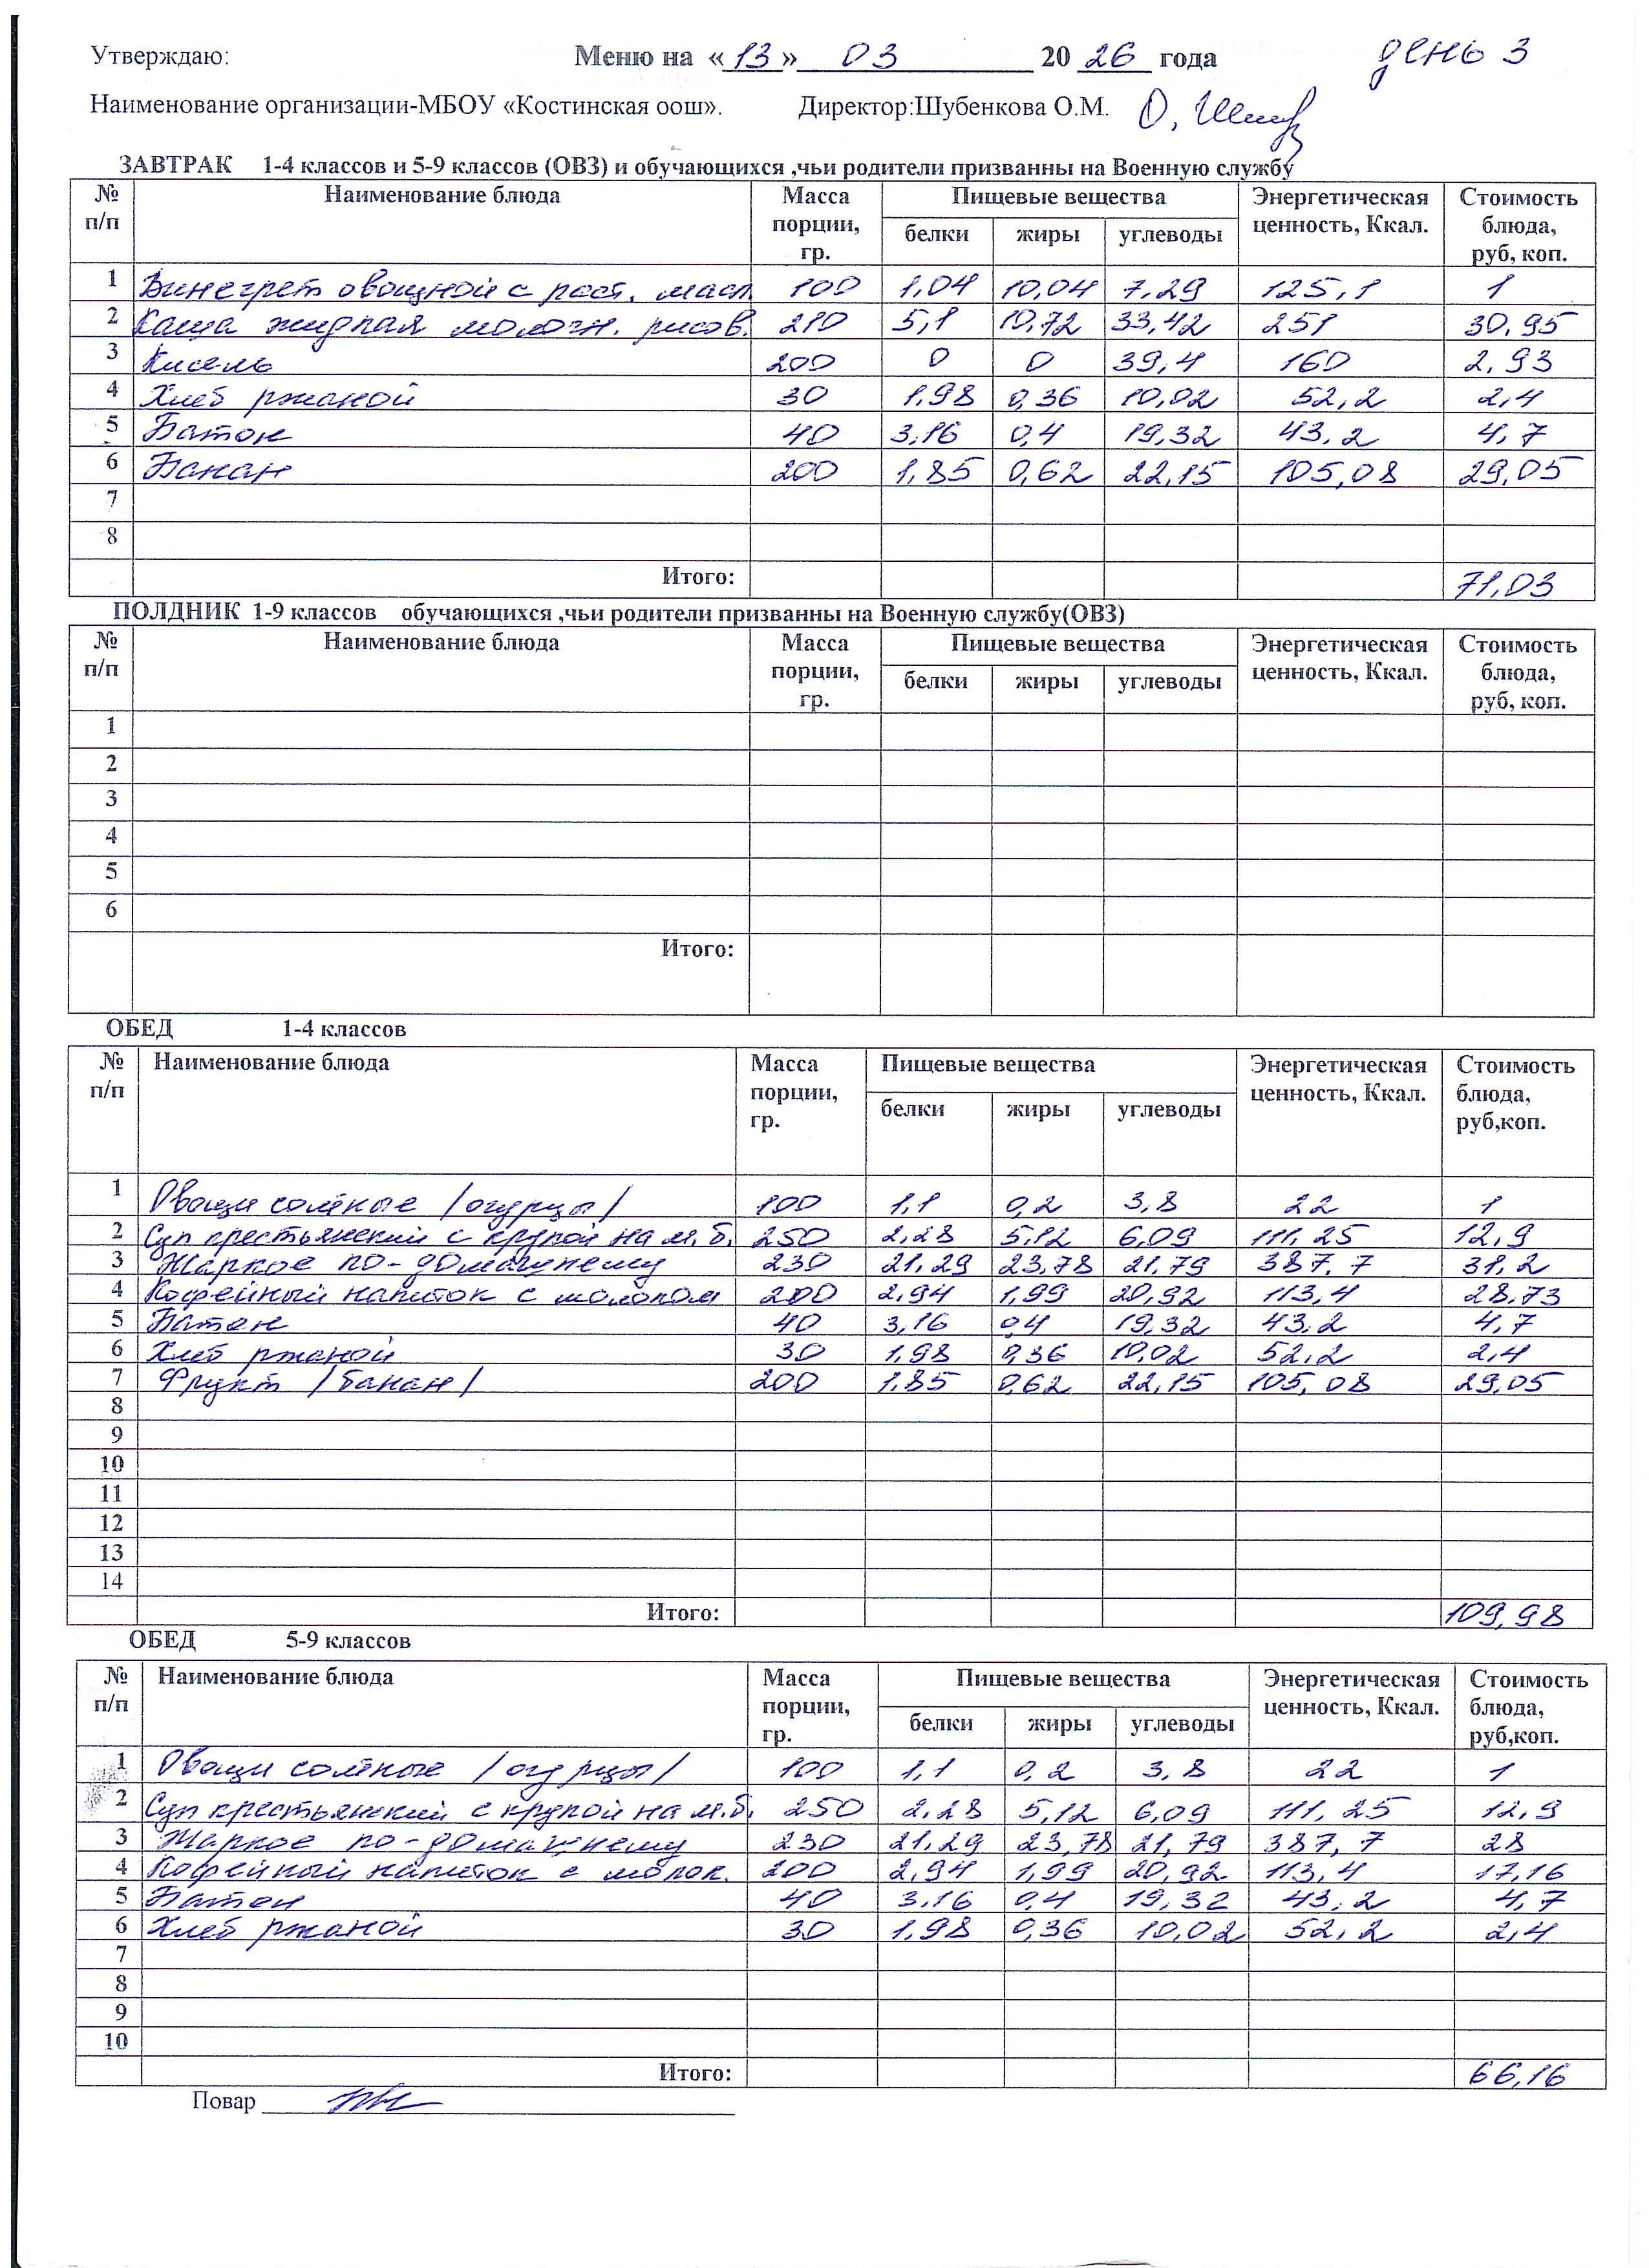 Утверждаю: Меню на «13» 03 2026 года день 3
Наименование организации-МБОУ «Костинская оош». Директор:Шубенкова О.М.
ЗАВТРАК 1-4 классов и 5-9 классов (ОВЗ) и обучающихся ,чьи родители призванны на Военную службу
№ п/п Наименование блюда Масса порции, гр. Пищевые вещества Энергетическая ценность, Ккал. Стоимость блюда, руб, коп.
белки жиры углеводы
1 Винегрет овощной с раст. масл 100 1,04 10,04 7,29 125,1 1
2 Каша жидкая молочн. рисов. 210 5,1 10,72 33,42 251 30,95
3 Кисель 200 0 0 39,4 160 2,93
4 Хлеб ржаной 30 1,98 0,36 10,02 52,2 2,4
5 Батон 40 3,16 0,4 19,32 43,2 4,7
6 Банан 200 1,85 0,62 22,15 105,08 29,05
7
8
Итого: 71,03
ПОЛДНИК 1-9 классов обучающихся ,чьи родители призванны на Военную службу(ОВЗ)
№ п/п Наименование блюда Масса порции, гр. Пищевые вещества Энергетическая ценность, Ккал. Стоимость блюда, руб, коп.
белки жиры углеводы
1
2
3
4
5
6
Итого:
ОБЕД 1-4 классов
№ п/п Наименование блюда Масса порции, гр. Пищевые вещества Энергетическая ценность, Ккал. Стоимость блюда, руб,коп.
белки жиры углеводы
1 Овощи солёные /огурцы/ 100 1,1 0,2 3,8 22 1
2 Суп крестьянский с крупой на м.б. 250 2,28 5,12 6,09 111,25 12,9
3 Жаркое по-домашнему 230 21,29 23,78 21,79 387,7 31,2
4 Кофейный напиток с молоком 200 2,94 1,99 20,92 113,4 28,73
5 Батон 40 3,16 0,4 19,32 43,2 4,7
6 Хлеб ржаной 30 1,98 0,36 10,02 52,2 2,4
7 Фрукт /банан/ 200 1,85 0,62 22,15 105,08 29,05
8
9
10
11
12
13
14
Итого: 109,98
ОБЕД 5-9 классов
№ п/п Наименование блюда Масса порции, гр. Пищевые вещества Энергетическая ценность, Ккал. Стоимость блюда, руб,коп.
белки жиры углеводы
1 Овощи солёные /огурцы/ 100 1,1 0,2 3,8 22 1
2 Суп крестьянский с крупой на м.б. 250 2,28 5,12 6,09 111,25 12,9
3 Жаркое по-домашнему 230 21,29 23,78 21,79 387,7 28
4 Кофейный напиток с молок. 200 2,94 1,99 20,92 113,4 17,16
5 Батон 40 3,16 0,4 19,32 43,2 4,7
6 Хлеб ржаной 30 1,98 0,36 10,02 52,2 2,4
7
8
9
10
Итого: 66,16
Повар